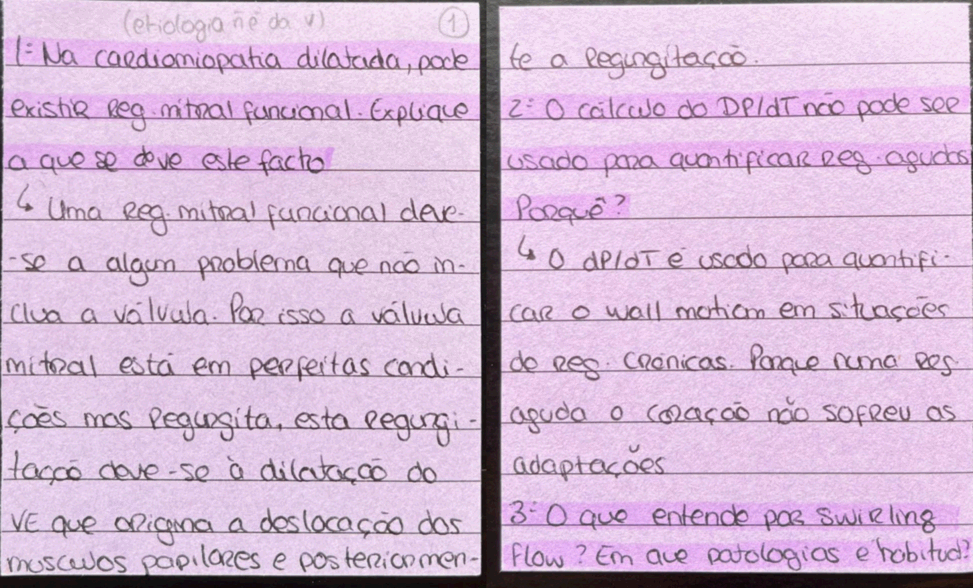 (etiologia ñ é da v) 1
1- Na cardiomiopatia dilatada, pode
existir reg. mitral funcional. Explique
a que se deve este facto
↳ Uma reg. mitral funcional deve-
-se a algum problema que não in-
clua a válvula. Por isso a válvula
mitral está em perfeitas condi-
ções mas regurgita, esta regurgi-
tação deve-se à dilatação do
VE que origina a deslocação dos
musculos papilares e posteriormen-
te a regurgitação.
2- O cálculo do DP/dT não pode ser
usado para quantificar reg. agudas
Porquê?
↳ O dP/dT é usado para quantifi-
car o wall motion em situações
de reg. crónicas. Porque numa reg.
aguda o coração não sofreu as
adaptações
3- O que entende por swirling
flow? Em que patologias é habitual?